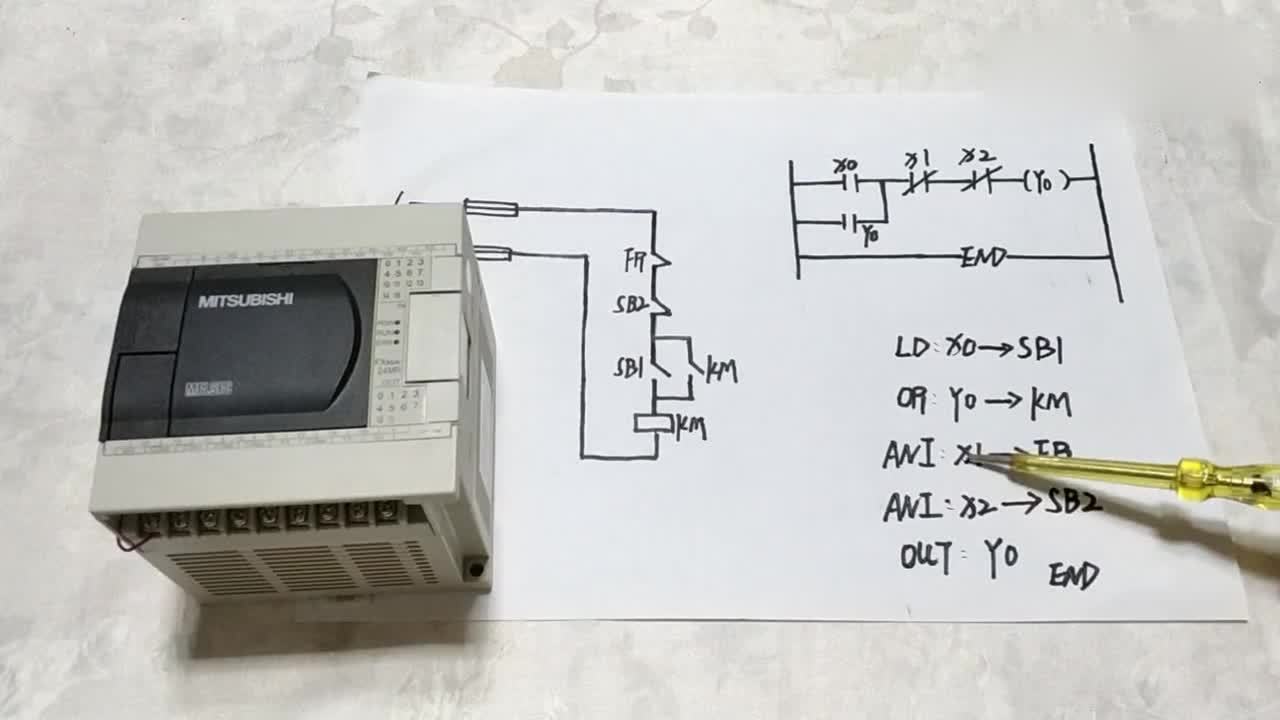 MITSUBISHI
0 1 2 3
4 5 6 7
OUT
0 1 2 3
4 5 6 7
FR
SB2
SB1
KM
KM
X0
X1
X2
(Y0)
Y0
END
LD: X0→SB1
OR: Y0→KM
ANI: X1→FR
ANI: X2→SB2
OUT: Y0
END